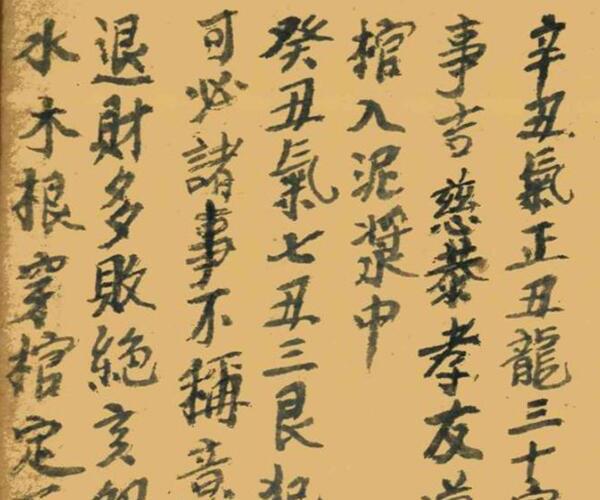 辛丑氣正丑龍三十
事吉慈恭孝友
棺入泥漿中
癸丑氣七丑三艮犯
可必諸事不稱意
退財多敗絕亥
水木根穿棺定